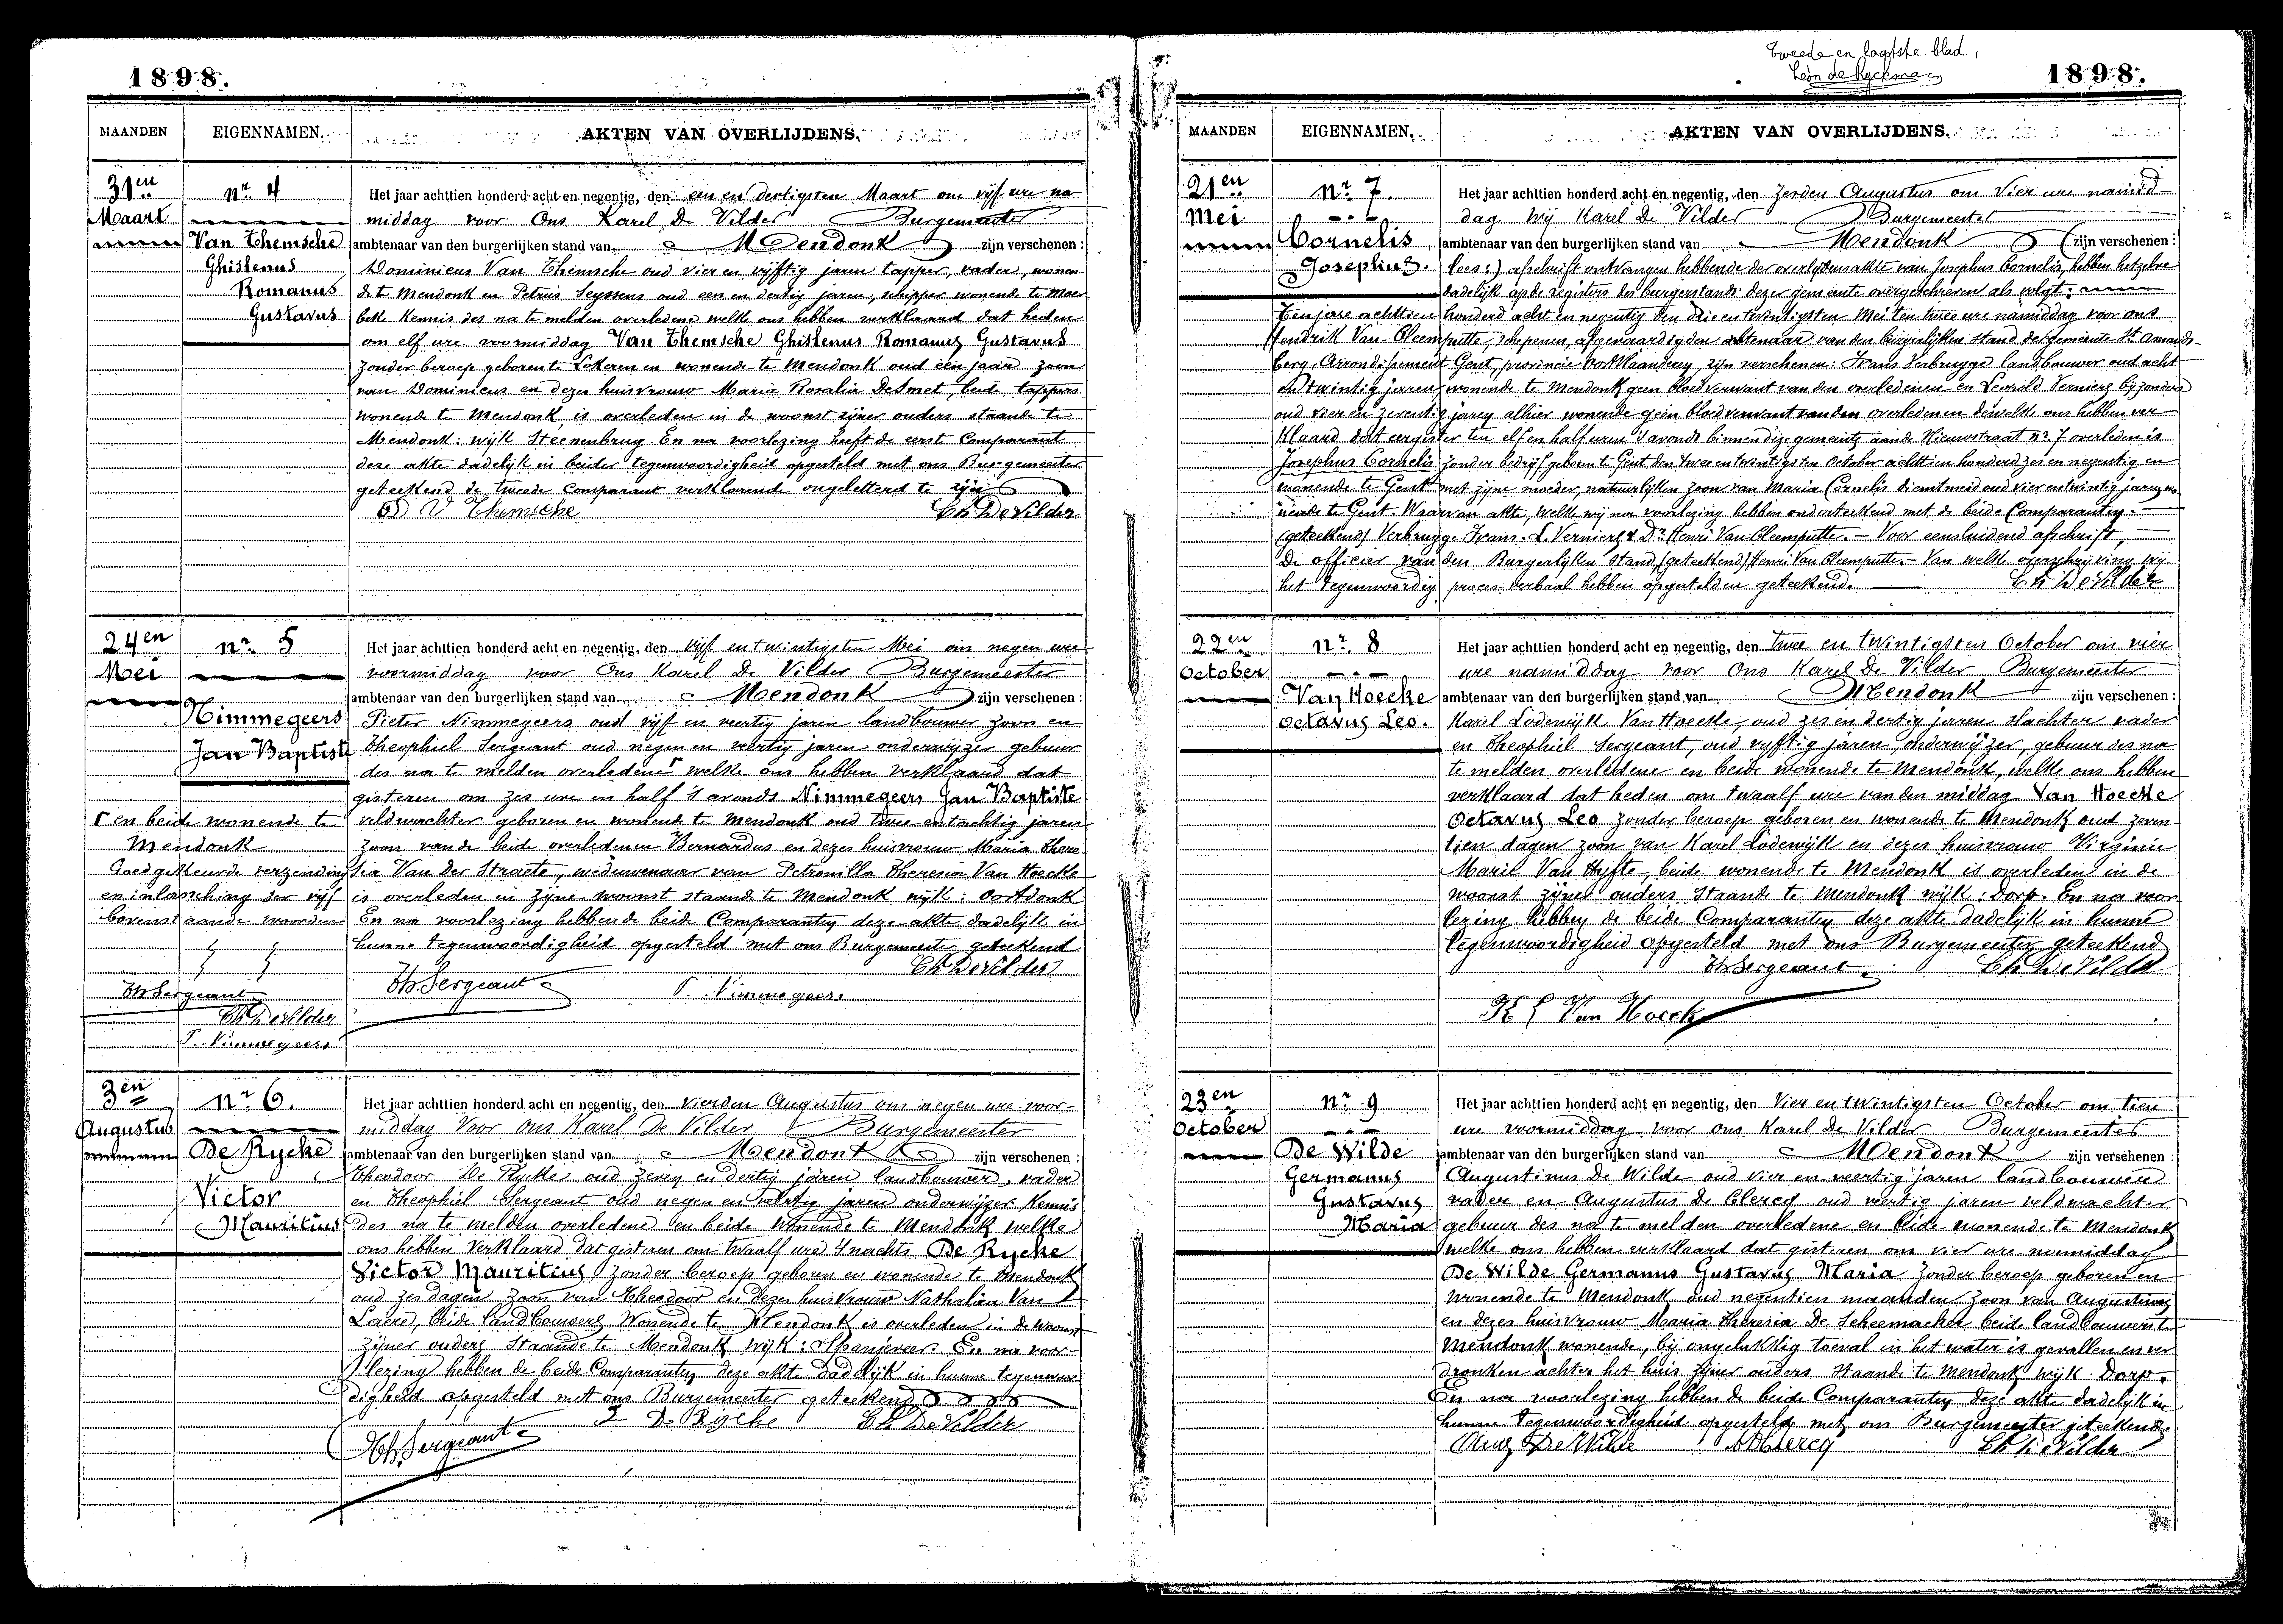 1898.
MAANDEN
EIGENNAMEN.
AKTEN VAN OVERLIJDENS.
31en
Maart
nr. 4
Van Themsche
Ghislenus
Romanus
Gustavus
Het jaar achttien honderd acht en negentig, den een en dertigsten Maart om vijf ure na
middag voor Ons Karel De Vilder Burgemeester
ambtenaar van den burgerlijken stand van Mendonk zijn verschenen :
Dominicus Van Themsche oud vier en vijftig jaren tapper, vader, wonen
de te Mendonk en Petrus Seyssens oud een en dertig jaren, schipper wonende te Moer
beke kennis des na te melden overledene welke ons hebben verklaard dat heden
om elf ure voormiddag Van Themsche Ghislenus Romanus Gustavus
zonder beroep geboren te Lokeren en wonende te Mendonk oud één jaar zoon
van Dominicus en dezes huisvrouw Maria Rosalia De Smet, beide tappers
wonende te Mendonk, is overleden in de woonst zijner ouders staande te
Mendonk: wijk Steenenbrug. En na voorlezing heeft de eerste Comparant
deze akte dadelijk in beider tegenwoordigheid opgesteld met ons Burgemeester
geteekend de tweede Comparant verklarende ongeletterd te zijn
D V Themsche Ch. De Vilder
24en
Mei
nr. 5
Nimmegeers
Jan Baptiste
Het jaar achttien honderd acht en negentig, den vijf en twintigsten Mei om negen ure
voormiddag voor Ons Karel De Vilder Burgemeester
ambtenaar van den burgerlijken stand van Mendonk zijn verschenen :
Pieter Nimmegeers oud vijf en veertig jaren landbouwer zoon en
Theophiel Sergeant oud negen en veertig jaren onderwijzer gebuur
des na te melden overledene Γ welke ons hebben verklaard dat
gisteren om zes ure en half 's avonds Nimmegeers Jan Baptiste
veldwachter geboren en wonende te Mendonk oud twee en tachtig jaren
zoon van de beide overledenen Bernardus en dezes huisvrouw Maria There
sia Van der Straete, weduwenaar van Petronilla Theresia Van Hoecke
is overleden in zijne woonst staande te Mendonk wijk: Oostdonk
En na voorlezing hebben de beide Comparanten deze akte dadelijk in
hunne tegenwoordigheid opgesteld met ons Burgemeester geteekend
Ch De Vilder
Th. Sergeant P. Nimmegeers
Γ en beide wonende te
Mendonk
Goedgekeurde verzending
en inlassching der vijf
bovenstaande woorden
Th Sergeant
Ch De Vilder
P. Nimmegeers
3en
Augustus
nr. 6.
De Rycke
Victor
Mauritius
Het jaar achttien honderd acht en negentig, den vierden Augustus om negen ure voor-
middag Voor ons Karel De Vilder Burgemeester
ambtenaar van den burgerlijken stand van Mendonk zijn verschenen :
Theodoor De Rycke oud zeven en dertig jaren landbouwer, vader
en Theophiel Sergeant oud negen en veertig jaren onderwijzer kennis
des na te melden overledene en beide wonende te Mendonk welke
ons hebben verklaard dat gisteren om twaalf ure 's nachts De Rycke
Victor Mauritius, zonder beroep geboren en wonende te Mendonk
oud zes dagen zoon van Theodoor en dezes huisvrouw Nathalia Van
Laere, beide landbouwers wonende te Mendonk is overleden in de woonst
zijner ouders staande te Mendonk wijk: Spanjeveer. En na voor-
lezing hebben de beide Comparanten deze akte dadelijk in hunne tegenwoor
digheid opgesteld met ons Burgemeester geteekend
De Rycke Ch De Vilder
Th. Sergeant
Tweede en laatste blad,
Léon de Ryckman
1898.
MAANDEN
EIGENNAMEN.
AKTEN VAN OVERLIJDENS.
21en
Mei
nr. 7.
Cornelis
Josephus.
Het jaar achttien honderd acht en negentig, den zesden Augustus om Vier ure namid-
dag Wij Karel De Vilder Burgemeester
ambtenaar van den burgerlijken stand van Mendonk (zijn verschenen :
lees:) afschrift ontvangen hebbende der overlijdensakte van Josephus Cornelis, hebben hetzelve
dadelijk op de registers des burgerstands dezer gemeente overgeschreven als volgt:
Ten jare achttien honderd acht en negentig den drie en twintigsten Mei ten twee ure namiddag voor ons
Hendrik Van Cleemputte, schepenen, afgevaardigden ambtenaar van den burgerlijken stand der gemeente St. Amands-
berg, Arrondissement Gent, provincie Oostvlaanderen zijn verschenen: Frans Verbrugge landbouwer oud acht
en twintig jaren, wonende te Mendonk geen bloedverwant van den overledenen en Leopold Vernierg bijzondere
oud vier en zeventig jaren alhier wonende geen bloedverwant van den overledenen dewelke ons hebben ver
klaard dat eergister ten elf en half uren 's avonds binnen deze gemeente aan de Nieuwstraat no. 7 overleden is
Josephus Cornelis zonder bedrijf geboren te Gent den twee en twintigsten October achttien honderd zes en negentig en
wonende te Gent met zijne moeder, natuurlijken zoon van Maria Cornelis dienstmeid oud vier en twintig jaren, wo
nende te Gent. Waarvan akte, welke wij na voorlezing hebben onderteekend met de beide Comparanten.
(geteekend) Verbrugge Frans. L. Vernierg & Dr. Henri Van Cleemputte. — Voor eensluidend afschrift,
De officier van den Burgerlijken Stand, (geteekend) Henri Van Cleemputte. — Van welke overschrijving wij
het tegenwoordig proces verbaal hebben opgesteld en geteekend. Ch De Vilder
22en
October
nr. 8
Van Hoecke
Octavus Leo.
Het jaar achttien honderd acht en negentig, den twee en twintigsten October om vier
ure namiddag voor Ons Karel De Vilder Burgemeester
ambtenaar van den burgerlijken stand van Mendonk zijn verschenen :
Karel Lodewijk Van Hoecke, oud zes en dertig jaren slachter vader
en Theophiel Sergeant, oud vijftig jaren, onderwijzer, gebuur des na
te melden overledene en beide wonende te Mendonk, welke ons hebben
verklaard dat heden om twaalf ure van den middag Van Hoecke
Octavus Leo zonder beroep geboren en wonende te Mendonk oud zeven-
tien dagen zoon van Karel Lodewijk en dezes huisvrouw Virginie
Marie Van Hyfte, beide wonende te Mendonk is overleden in de
woonst zijner ouders staande te Mendonk wijk: Dorp. En na voor
lezing hebben de beide Comparanten deze akte dadelijk in hunne
tegenwoordigheid opgesteld met ons Burgemeester geteekend
Th Sergeant Ch De Vilder
K L Van Hoecke
23en
October
nr. 9
De Wilde
Germanus
Gustavus
Maria
Het jaar achttien honderd acht en negentig, den Vier en twintigsten October om tien
ure voormiddag voor ons Karel De Vilder Burgemeester
ambtenaar van den burgerlijken stand van Mendonk zijn verschenen :
Augustinus De Wilde oud vier en veertig jaren landbouwer
vader en Augustus De Clercq oud veertig jaren veldwachter
gebuur des na te melden overledene en beide wonende te Mendonk
welke ons hebben verklaard dat gisteren om vier ure namiddag
De Wilde Germanus Gustavus Maria zonder beroep geboren en
wonende te Mendonk oud negentien maanden zoon van Augustinus
en dezes huisvrouw Maria Theresia De Scheemacker beide landbouwers te
Mendonk wonende, bij ongelukkig toeval in het water is gevallen en ver
dronken achter het huis zijner ouders staande te Mendonk wijk Dorp.
En na voorlezing hebben de beide Comparanten deze akte dadelijk in
hunne tegenwoordigheid opgesteld met ons Burgemeester geteekend.
Aug De Wilde A De Clercq Ch De Vilder